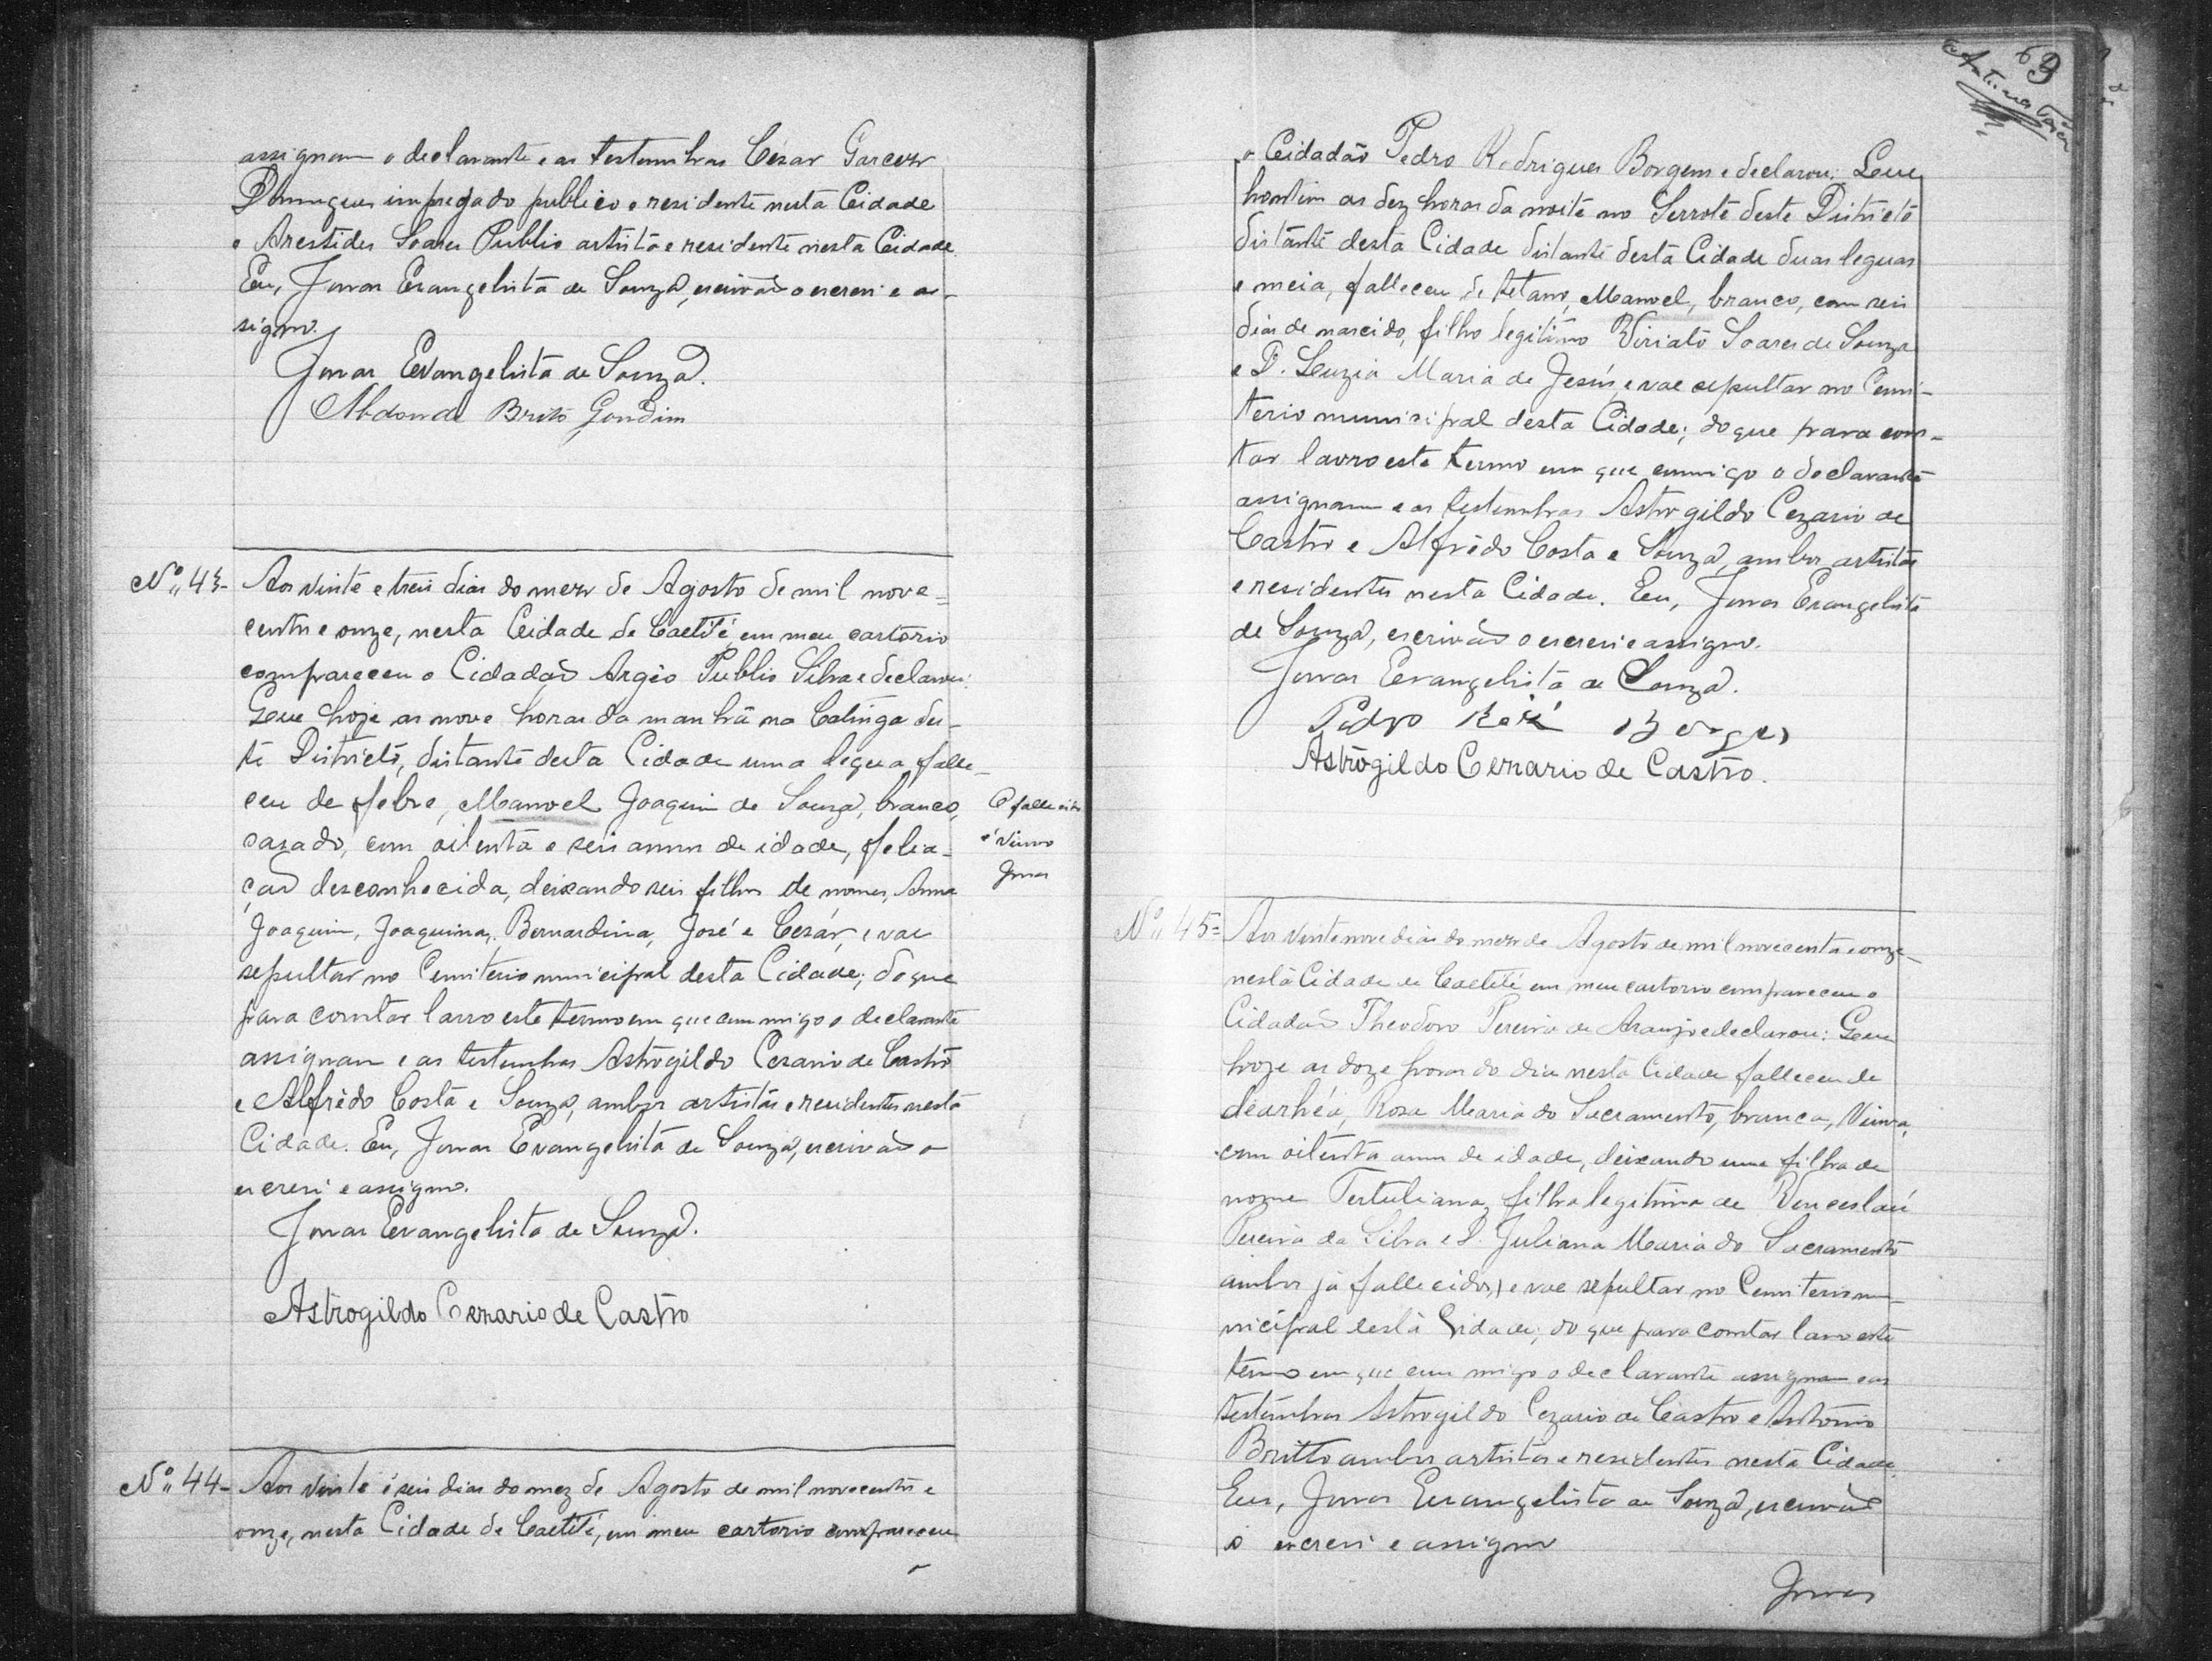 assignam o declarante e as testemunhas Cézar Garcez
Domingues impregado publico e residente nesta Cidade
e Arestides Soares Publio artista e residente nesta Cidade.
Eu, Jonas Evangelista de Souza, escrivão o escrevi e as-
signo.
Jonas Evangelista de Souza.
Abdon de Brito Gondim
Nº 43- Aos vinte e treis dias do mez de Agosto de mil nove=
centos e onze, nesta Cidade de Caetité, em meu cartorio
compareceu o Cidadão Argéo Publio Silva e declarou:
Que hoje as nove horas da manhã na Catinga des-
te Districto, distante desta Cidade uma legua, falle-
ceu de febre, Manoel Joaquim de Souza, branco,
casado, com oitenta e seis annos de idade, felia-
ção desconhecida, deixando seis filhos de nomes, Anna
Joaquim, Joaquina, Bernardina, José e Cesár, e vae
sepultar no Cemiterio municipal desta Cidade; do que
para constar lavro este termo em que commigo o declarante
assignam e as testemunhas Astrogildo Cesario de Castro
e Alfrêdo Costa e Souza, ambos artistas e residentes nesta
Cidade. Eu, Jonas Evangelista de Souza, escrivão o
escrevi e assigno.
O fallecido
é viuvo
Jonas
Jonas Evangelista de Souza.
Astrogildo Cezario de Castro
Nº 44- Aos vinte e seis dias do mez de Agosto de mil novecentos e
onze, nesta Cidade de Caetité, em meu cartorio compareceu
69
o Cidadão Pedro Rodrigues Borgem e declarou: Que
hontem as dez horas da noite no Serrote deste Districto
distante desta Cidade distante desta Cidade duas leguas
e meia, falleceu de tetano, Manoel, branco, com seis
dias de nascido, filho legitimo Viriato Soares de Souza
e D. Luzia Maria de Jesús, e vae sepultar no Cemi-
terio municipal desta Cidade; do que para cons-
tar lavro este termo em que commigo o declarante
assignam e as testemunhas Astrogildo Cezario de
Castro e Alfrêdo Costa e Souza, ambos artistas
e residentes nesta Cidade. Eu, Jonas Evangelista
de Souza, escrivão o escrevi e assigno.
Jonas Evangelista de Souza.
Pedro Borges
Astrogildo Cezario de Castro.
Nº 45= Aos vinte nove dias do mez de Agosto de mil novecentos e onze
nesta Cidade de Caetité em meu cartorio compareceu o
Cidadão Theodoro Pereira de Araujo e declarou: Que
hoje as doze horas do dia nesta Cidade falleceu de
dearhéa, Rosa Maria do Sacramento, branca, Viuva,
com oitenta annos de idade, deixando uma filha de
nome Tertuliana, filha legitima de Venceslau
Pereira da Silva e D. Juliana Maria do Sacramento
ambos já fallecidos, e vae sepultar no Cemiterio mu-
nicipal desta Cidade; do que para constar lavro este
termo em que commigo o declarante assignam e as
testemunhas Astrogildo Cezario de Castro e Antonio
Britto ambos artistas e residentes nesta Cidade.
Eu, Jonas Evangelista de Souza, escrivão
o escrevi e assigno
Jonas